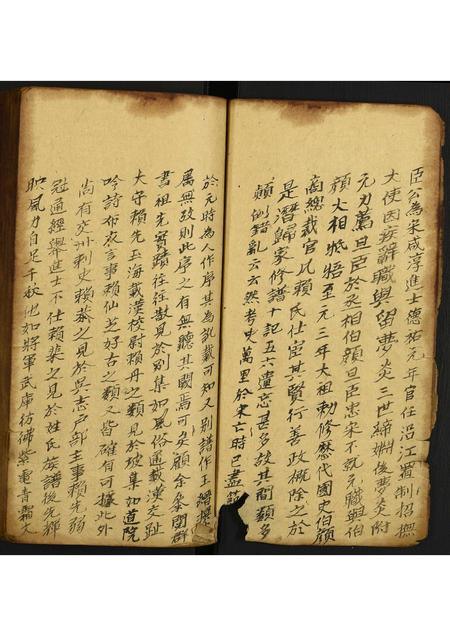 臣公為宋咸淳進士德祐元年官任沿江置制招撫
大使因疾辭職與留夢炎三世締姻後夢炎附
元力薦旦臣於丞相伯顏旦臣忠宋不就元職與伯
顏大相抵牾至元三年大祖勅修歷代國史伯顏
商總裁官以賴氏仕宦其賢行善政概除之於
是潛歸家修譜十記五六遺忘甚多故其間類多
顛倒錯亂云云然考史萬里於宋亡時已盡節
於元時為人作序其為訛載可知又別譜作王
屬無攷則此序之有無聽其闕焉可矣顧余泰閱群
書祖先實蹟往往散見於別集如風俗通載漢交趾
大守賴先玉海載漢校尉賴丹之類見於坡集如道院
吟詩布衣言事賴仙芝好古之類又皆確有可據此外
尚有交州刺史賴恭之見於吳志戶部主事賴先弱
冠通經舉進士不仕賴棐之見於姓氏族譜後先輝
映風力自足千秋他如將軍武庫彷彿紫電青霜